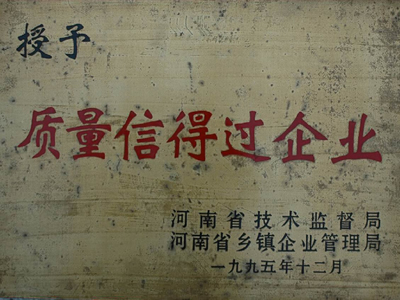 授予
质量信得过企业
河南省技术监督局
河南省乡镇企业管理局
一九九五年十二月